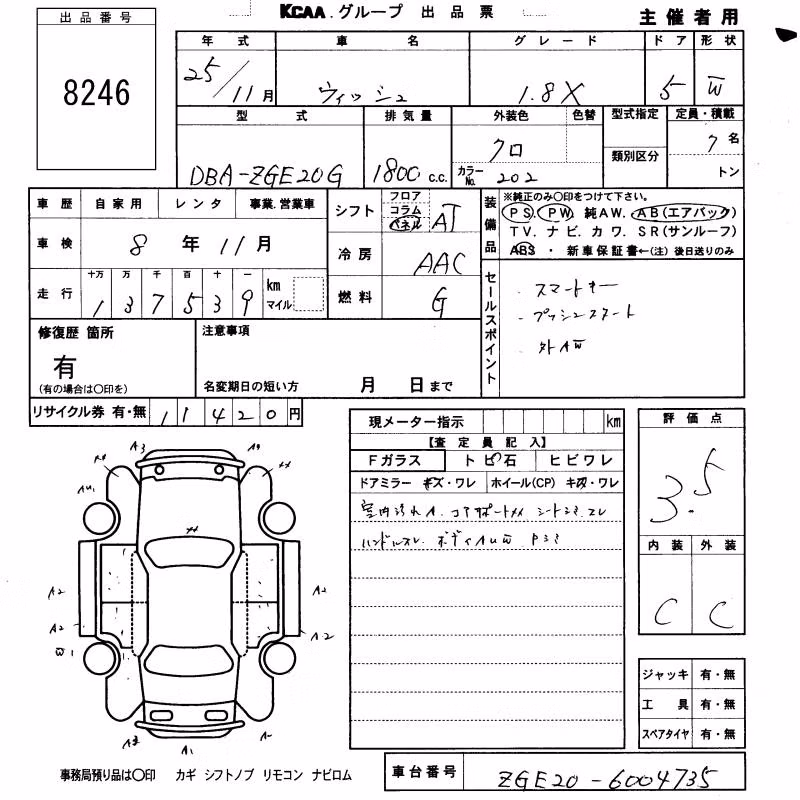 KCAA.グループ 出品票
主催者用
出品番号
8246
年式 車名 グレード ドア 形状
25/11月 ウィッシュ 1.8X 5 W
型式 排気量 外装色 色替 型式指定 定員・積載
類別区分
DBA-ZGE20G 1800c.c. クロ カラーNo. 202 7名
トン
車歴 自家用 レンタ 事業.営業車
車検 8年11月
走行 十万 万 千 百 十 一
1 3 7 5 3 9 km マイル
シフト フロア コラム パネル AT
冷房 AAC
燃料 G
装備品
※純正のみ○印をつけて下さい。
PS. PW. 純AW. AB(エアバック)
TV. ナビ. カワ. SR(サンルーフ)
ABS ・ 新車保証書←(注)後日送りのみ
セールスポイント
・スマートキー
・プッシュスタート
・外AW
修復歴 箇所
有
(有の場合は○印を)
注意事項
名変期日の短い方 月 日まで
リサイクル券 有・無 11420円
現メーター指示 km
【査定員記入】
Fガラス トビ石 ヒビワレ
ドアミラー キズ・ワレ ホイール(CP) キズ・ワレ
室内汚れA.
ハンドルスレ.
評価点
3.5
内装 外装
C C
ジャッキ 有・無
工具 有・無
スペアタイヤ 有・無
A3
A2 A2
A2 A-2
W1
A3 A1
事務局預り品は○印 カギ シフトノブ リモコン ナビロム
車台番号 ZGE20-6004735